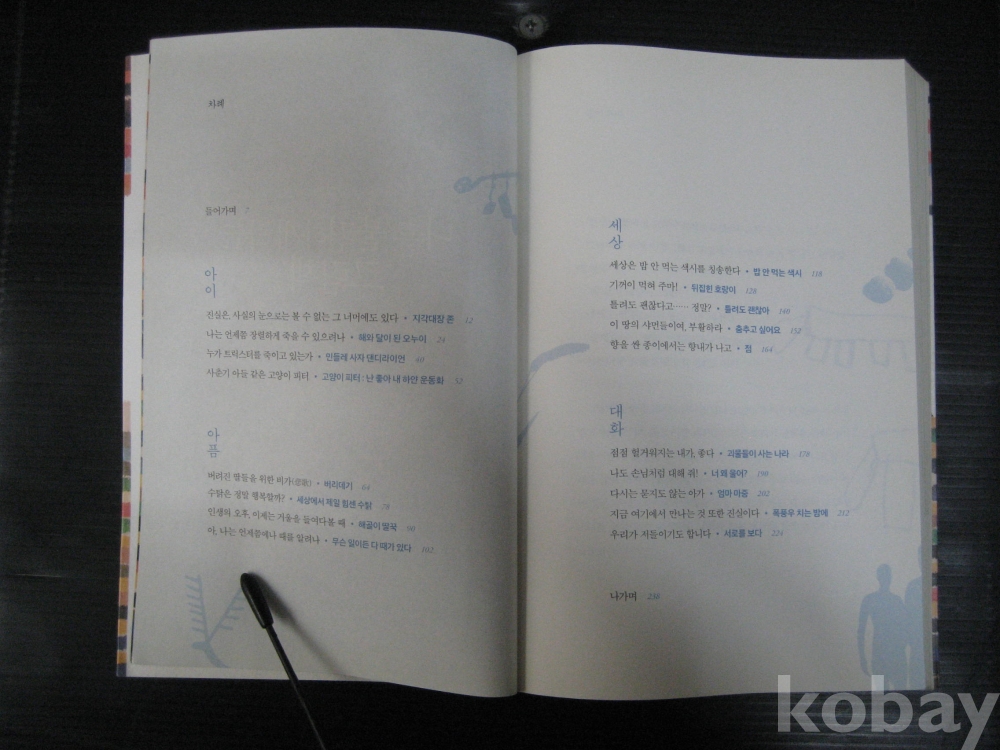 차례
들어가며 7
아이
진실은, 사실의 눈으로는 볼 수 없는 그 너머에도 있다 • 지각대장 존 12
나는 언제쯤 장렬하게 죽을 수 있으려나 • 해와 달이 된 오누이 24
누가 트릭스터를 죽이고 있는가 • 민들레 사자 댄디라이언 40
사춘기 아들 같은 고양이 피터 • 고양이 피터 : 난 좋아 내 하얀 운동화 52
아픔
버려진 딸들을 위한 비가(悲歌) • 바리데기 64
수탉은 정말 행복할까? • 세상에서 제일 힘센 수탉 78
인생의 오후, 이제는 거울을 들여다볼 때 • 해골이 딸꾹 90
아, 나는 언제쯤에나 때를 알려나 • 무슨 일이든 다 때가 있다 102
세상
세상은 밥 안 먹는 색시를 칭송한다 • 밥 안 먹는 색시 116
기꺼이 먹혀 주마! • 뒤집힌 호랑이 128
틀려도 괜찮다고…… 정말? • 틀려도 괜찮아 140
이 땅의 샤먼들이여, 부활하라 • 춤추고 싶어요 152
향을 싼 종이에서는 향내가 나고 • 점 164
대화
점점 헐거워지는 내가, 좋다 • 괴물들이 사는 나라 178
나도 손님처럼 대해 줘! • 너 왜 울어? 190
다시는 묻지도 않는 아가 • 엄마 마중 202
지금 여기에서 만나는 것 또한 진실이다 • 폭풍우 치는 밤에 212
우리가 저들이기도 합니다 • 서로를 보다 224
나가며 236
kobay